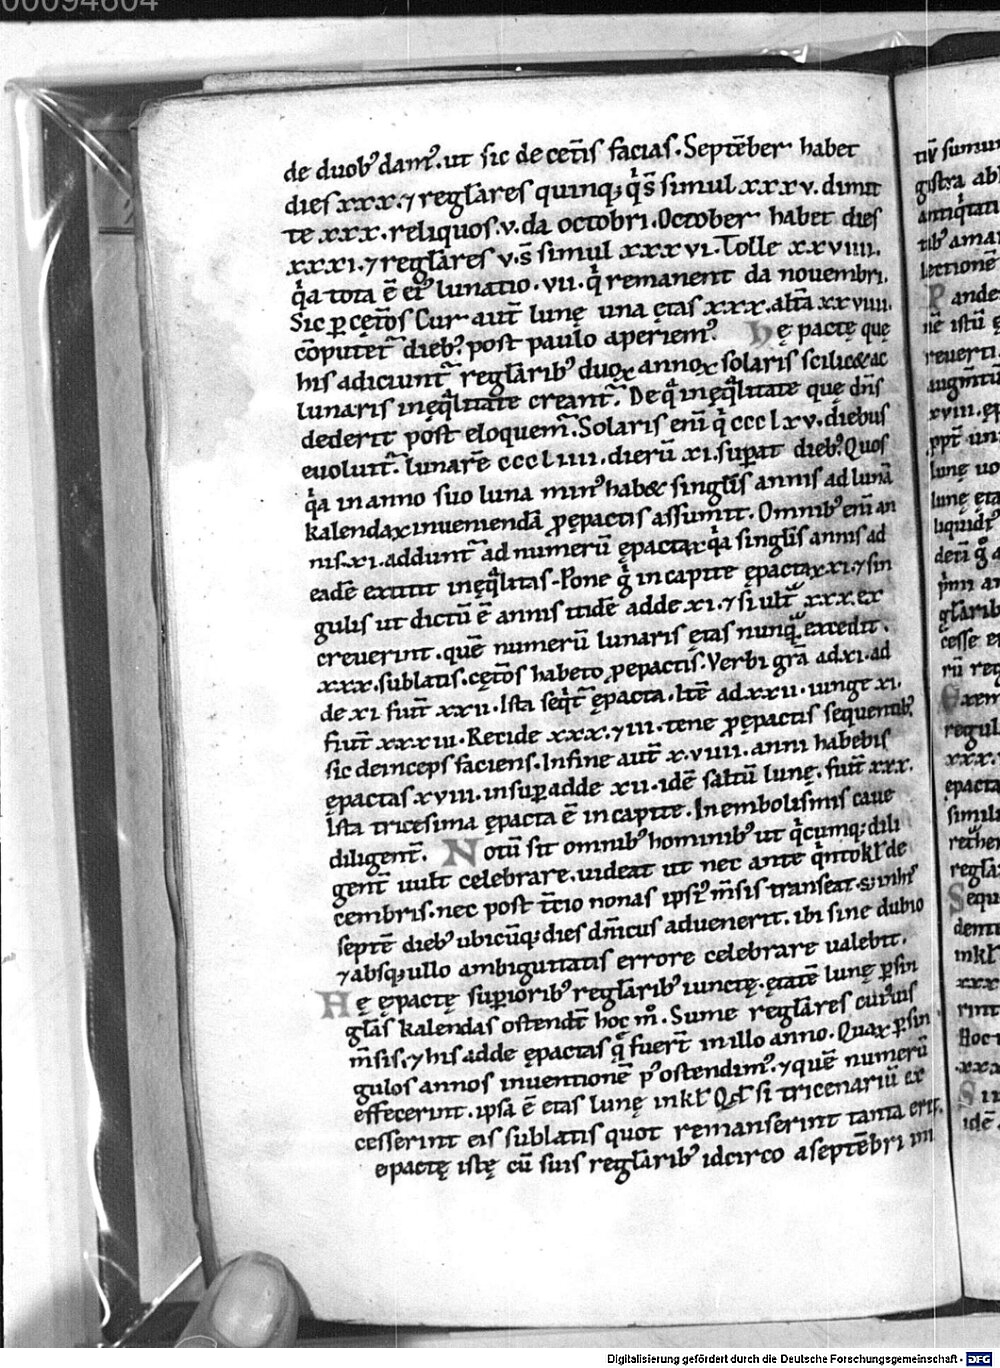 00094604
de duob᷒ damꝰ. ut sic de cet̄is facias. Septēber habet
dies xxx. ⁊ reglares quinq; q̇ s̄ simul xxxv. dimit
te xxx. reliquos. v. da octobri. October habet dies
xxxi. ⁊ reglares v. s̄ simul xxxvi. Tolle xxviiii.
q̇a tota ē eiꝰ lunatio. vii. q̇ remanent da nouembri.
Sic ꝑ cęt̄os Cur aut̄ lunę una ętas xxx. alt̄a xxviiii.
cōputet᷑ dieb᷒ post paulo aperiemꝰ. Hę pactę quę
his adiciunt᷑ reglarib᷒ duoꝝ annoꝝ solaris scilic& ac
lunaris inęq̇litate creant᷑. De q̇ inęq̇litate quę dn̄s
dederit post eloquemꝰ. Solaris eni q̇ ccclxv. diebus
euoluit᷑. lunarē cccliiii. dierū xi. suꝑat dieb᷒. Quos
q̇a in anno suo luna minꝰ hab& singlis annis ad lunā
kalendaꝝ inueniendā ꝓ epactis assumit. Omnib᷒ eni an
nis. xi. addunt᷑ ad numerū ępactaꝝ q̇a singlis annis ad
eadē extitit inęq̇litas. Pone g̊ in capite ępactaꝝ xi. ⁊ sin
gulis ut dictū ē annis itidē adde xi. ⁊ si ult᷑ xxx. ex
creuerint. quē numerū lunaris ętas nunq̄ excedit.
xxx. sublatis. cęt̄os habeto ꝓ epactis. Verbi grā ad xi. ad
de xi fiūt xxii. Ista seq̇t᷑ ępacta. Itē ad xxii. iunge xi.
fiūt xxxiii. Recide xxx. ⁊ iii. tene ꝓ epactis sequentib᷒.
sic deinceps faciens. In fine aut̄ x. viiii. anni habebis
ępactas xviii. insuꝑ adde xii. idē saltū lunę. fiūt xxx.
Ista tricesima ępacta ē in capite. In embolismis caue
diligent᷑. Notū sit omnib᷒ hominib᷒ ut q̇cumq; dili
gent᷑ uult celebrare. uideat ut nec ante q̇nto kl̄ de
cembris. nec post t̄cio nonas ipsiꝰ m̄sis transeat. s; in hiꝰ
septē dieb᷒ ubicūq; dies dn̄icus aduenerit. ibi sine dubio
⁊ absq; ullo ambiguitatis errore celebrare ualebit.
Hę ępactę suꝑiorib᷒ reglarib᷒ iunctę. ętatē lunę ꝑ sin
glas kalendas ostendt̄ hoc m̊. Sume reglares cuiꝰuis
m̄sis. ⁊ his adde ępactas q̇ fuert̄ in illo anno. Quaꝝ ꝑ sin
gulos annos inuentionē p᷒ ostendimꝰ. ⁊ quē numerū
effecerint. ipsa ē etas lunę in kl̄. Qd̄ si tricenariū ex
cesserint eis sublatis quot remanserint tanta erit.
epactę istę cū suis reglarib᷒ idcirco a septēbri in
Digitalisierung gefördert durch die Deutsche Forschungsgemeinschaft - DFG